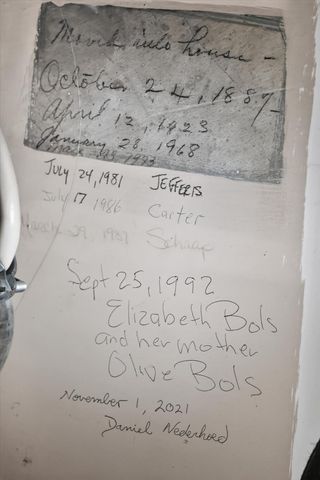 Moved into house -
October 24, 1887
April 12, 1923
January 28, 1968
July 24, 1981 JEFFERIS
July 17 1986 Carter
March 29, 1989 Schaap
Sept 25, 1992
Elizabeth Bols
and her mother
Olive Bols
November 1, 2021
Daniel Nederhoed